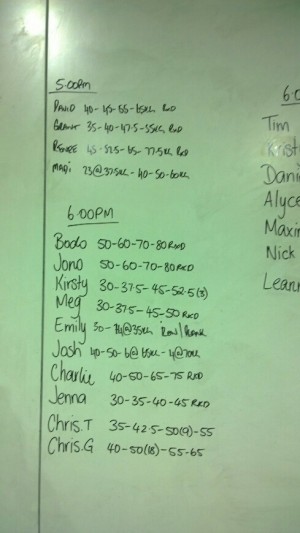 5.00pm
DAVID 40-45-55-65KG RXD
GRANT 35-40-47.5-55KG RXD
RENEE 45-52.5-65-77.5KG RXD
MADI 23@37.5KG-40-50-60KG
6.00PM
Bodo 50-60-70-80RXD
Jono 50-60-70-80RXD
Kirsty 30-37.5-45-52.5(3)
Meg 30-37.5-45-50RXD
Emily 30-
Josh 40-50-6@65KG-4@70KG
Charlie 40-50-65-75 RXD
Jenna 30-35-40-45RXD
Chris.T 35-42.5-50(9)-55
Chris.G 40-50(18)-55-65
6:0
Tim
Krist
Dani
Alyce
Maxin
Nick
Leann